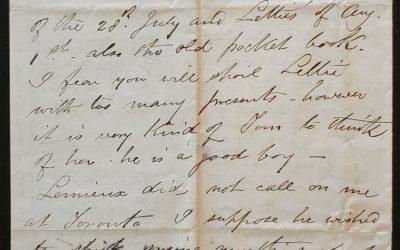 of the 28th July and Lettie's of Aug.
1st. also the old pocket book.
I fear you will spoil Lettie
with too many presents - however
it is very kind of Tom to think
of her. he is a good boy -
Lemieux did not call on me
at Toronto I suppose he wished
to